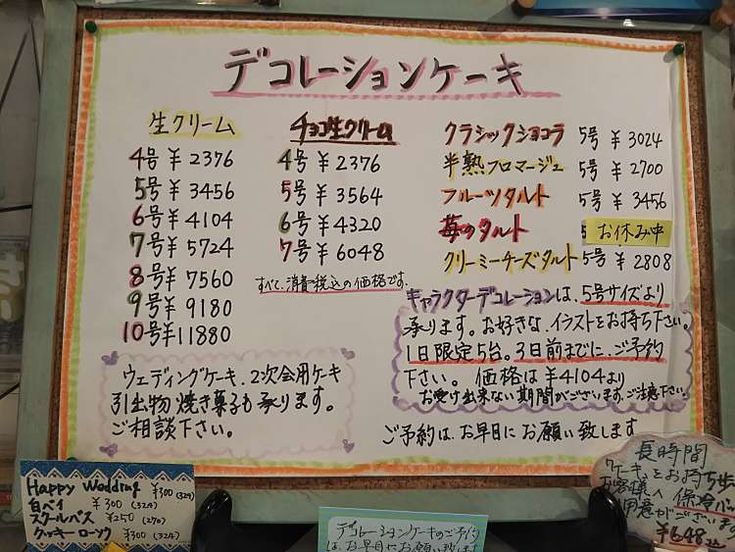 デコレーションケーキ
生クリーム
4号 ¥ 2376
5号 ¥ 3456
6号 ¥ 4104
7号 ¥ 5724
8号 ¥ 7560
9号 ¥ 9180
10号 ¥ 11880
チョコ生クリーム
4号 ¥ 2376
5号 ¥ 3564
6号 ¥ 4320
7号 ¥ 6048
すべて、消費税込の価格です。
クラシックショコラ 5号 ¥ 3024
半熟フロマージュ 5号 ¥ 2700
フルーツタルト 5号 ¥ 3456
苺のタルト 5 お休み中
クリーミーチーズタルト 5号 ¥ 2808
キャラクターデコレーションは、5号サイズより
承ります。お好きな、イラストをお持ち下さい。
1日限定5台。3日前までにご予約
下さい。 価格は ¥4104より
お受け出来ない期間がございます。ご注意下さい。
ウェディングケーキ、2次会用ケーキ
引出物焼き菓子も承ります。
ご相談下さい。
ご予約は、お早目にお願い致します
Happy Wedding ¥300 (324)
白ベイ ¥300 (324)
スクールバス ¥250 (270)
クッキーローソク ¥300 (324)
デコレーションケーキのご予約
は、お早目にお願い致します
長時間
ケーキをお持ち歩
お客様へ 保冷バッ
用意がございま
¥648込